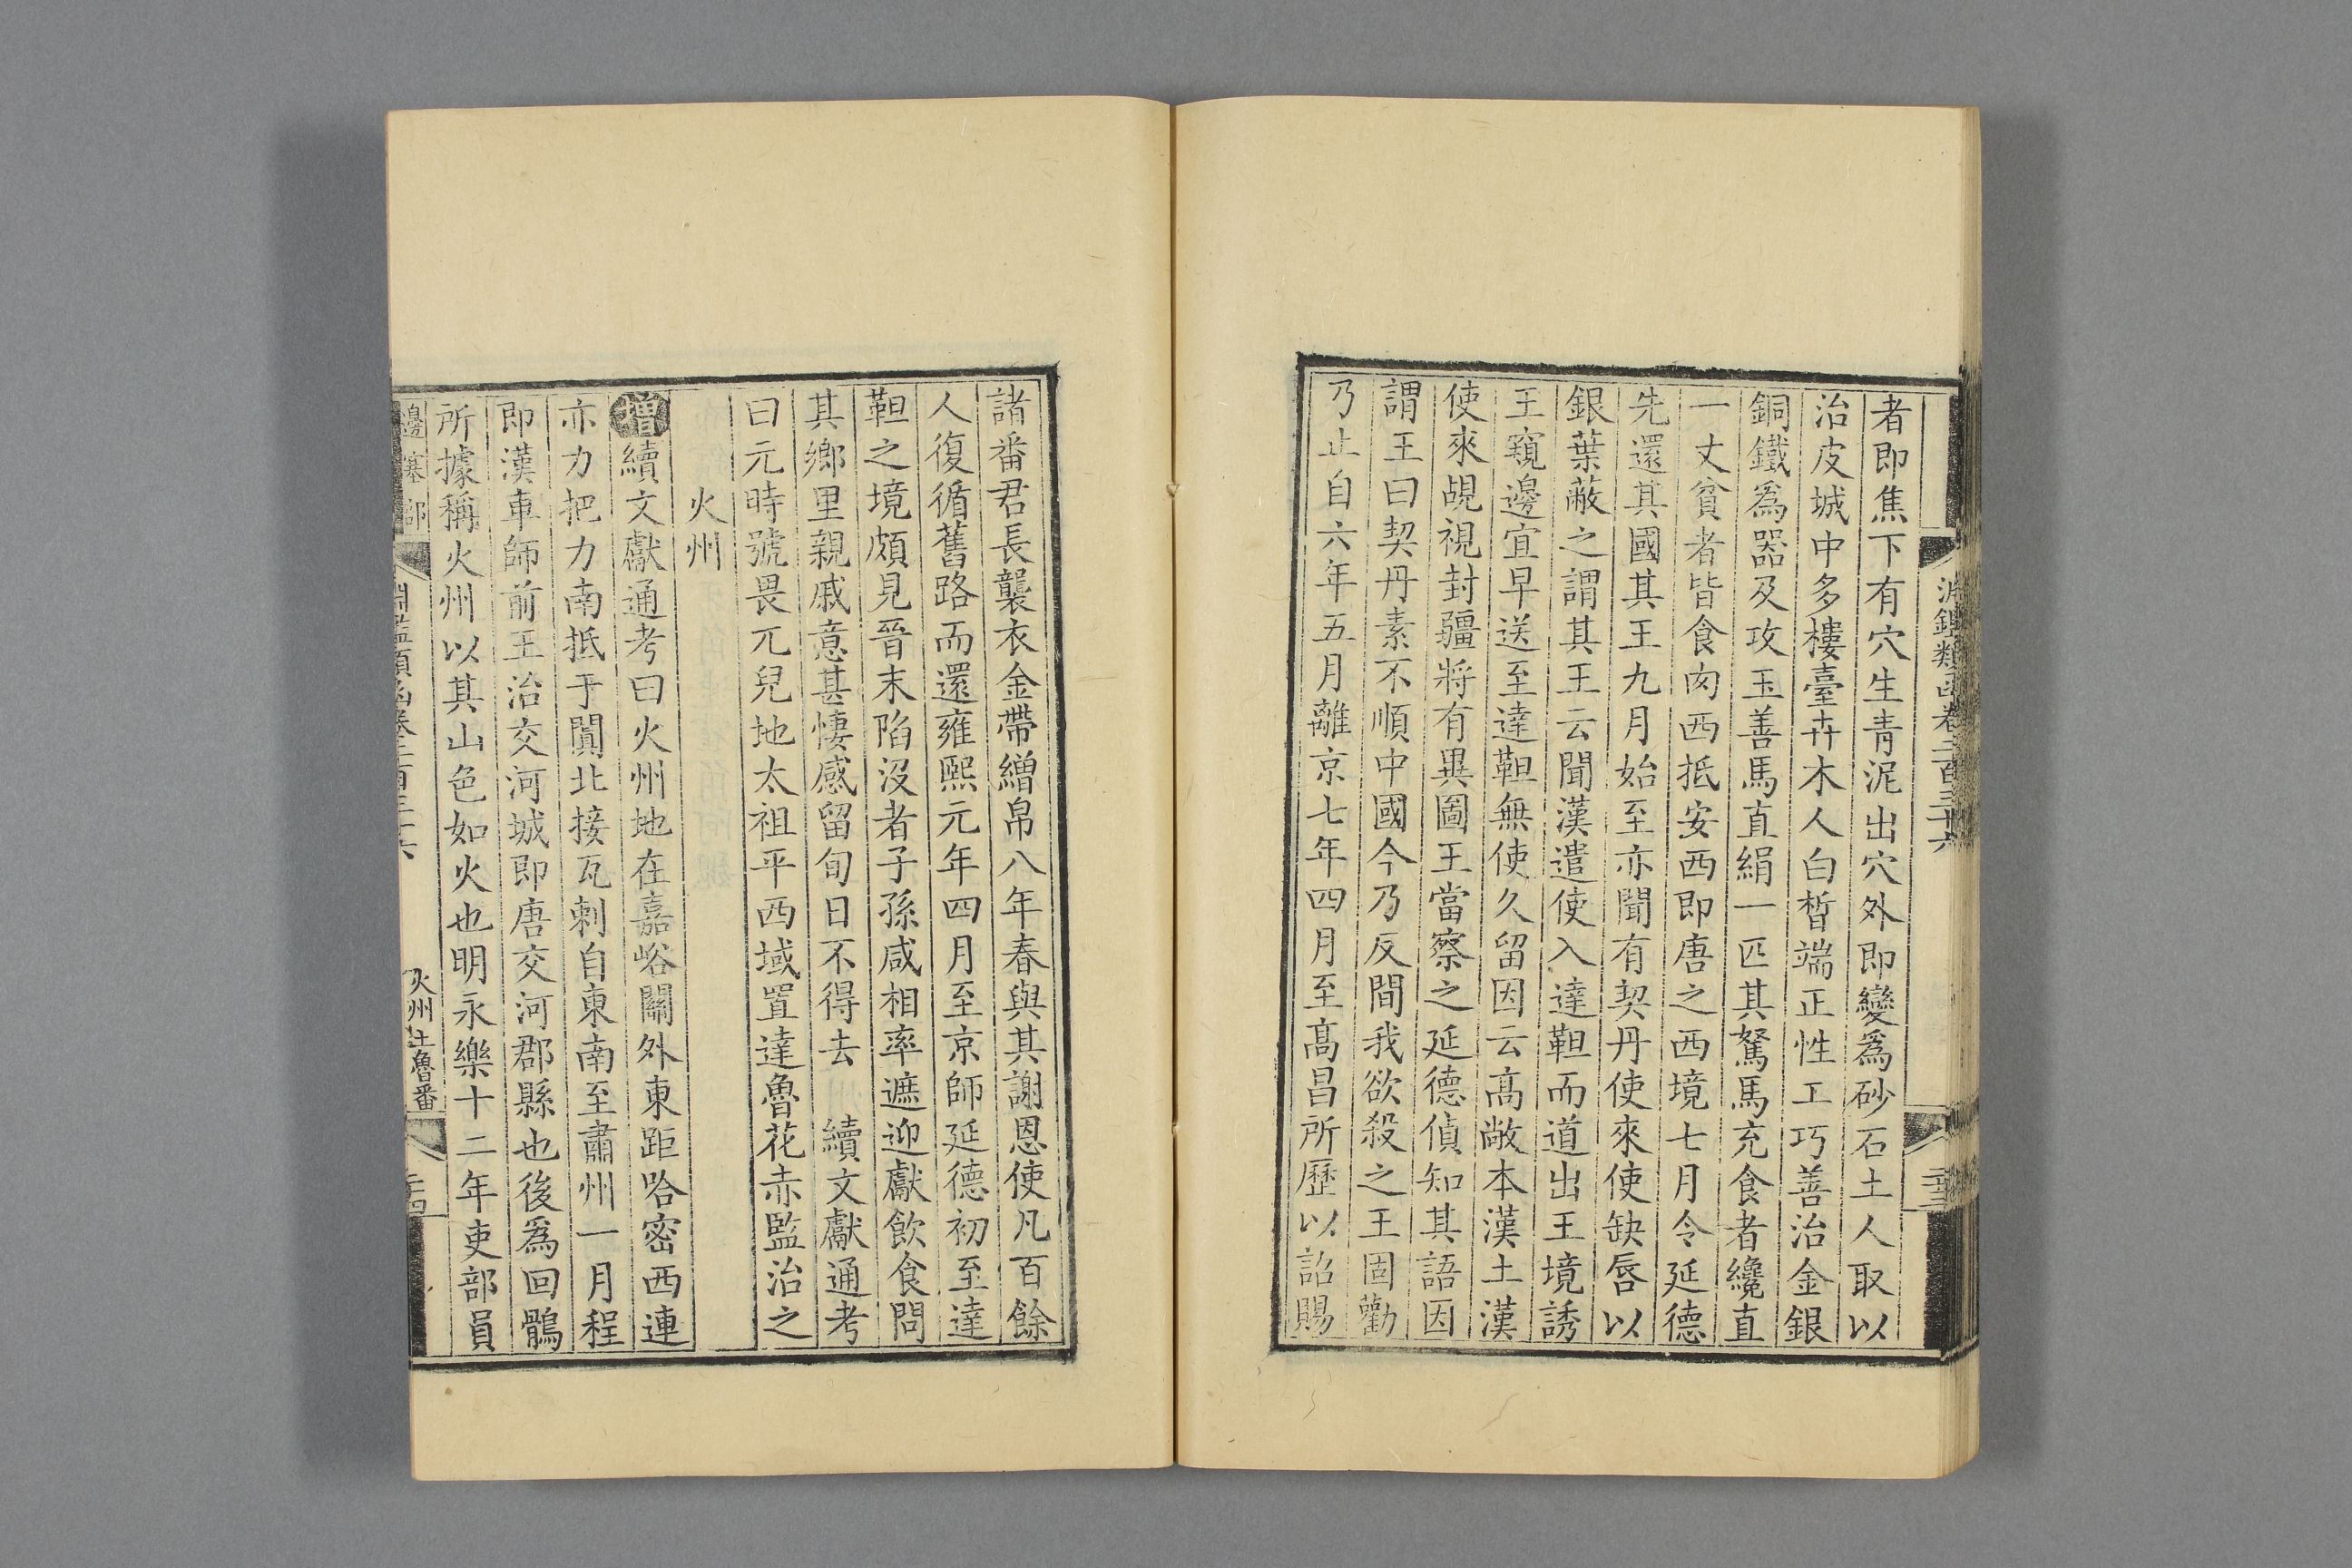 淵鑑類函卷二百三十六
二十三
者即焦下有穴生青泥出穴外即變爲砂石土人取以
治皮城中多樓臺卉木人白晳端正性工巧善治金銀
銅鐵爲器及攻玉善馬直絹一匹其駑馬充食者纔直
一丈貧者皆食肉西抵安西即唐之西境七月令延德
先還其國其王九月始至亦聞有契丹使來使缺唇以
銀葉蔽之謂其王云聞漢遣使入達靼而道出王境誘
王窺邊宜早送至達靼無使久留因云高敞本漢土漢
使來覘視封疆將有異圖王當察之延德偵知其語因
謂王曰契丹素不順中國今乃反間我欲殺之王固勸
乃止自六年五月離京七年四月至高昌所歷以詔賜
諸番君長襲衣金帶繒帛八年春與其謝恩使凡百餘
人復循舊路而還雍熙元年四月至京師延德初至達
靼之境頗見晉末陷沒者子孫咸相率遮迎獻飲食問
其鄉里親戚意甚悽感留旬日不得去 續文獻通考
曰元時號畏兀兒地太祖平西域置達魯花赤監治之
火州
增續文獻通考曰火州地在嘉峪關外東距哈密西連
亦力把力南抵于闐北接瓦剌自東南至肅州一月程
即漢車師前王治交河城即唐交河郡縣也後爲回鶻
所據稱火州以其山色如火也明永樂十二年吏部員
邊塞部
淵鑑類函卷二百三十六
火州土魯番
二十四